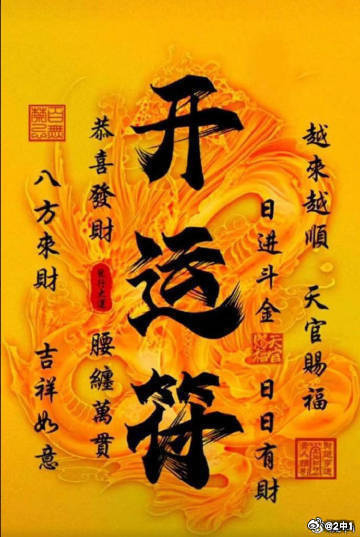 开运符
越來越順 天官賜福
日进斗金 日日有財
恭喜發財 腰纏萬貫
八方來財 吉祥如意
天官賜福
@2中1